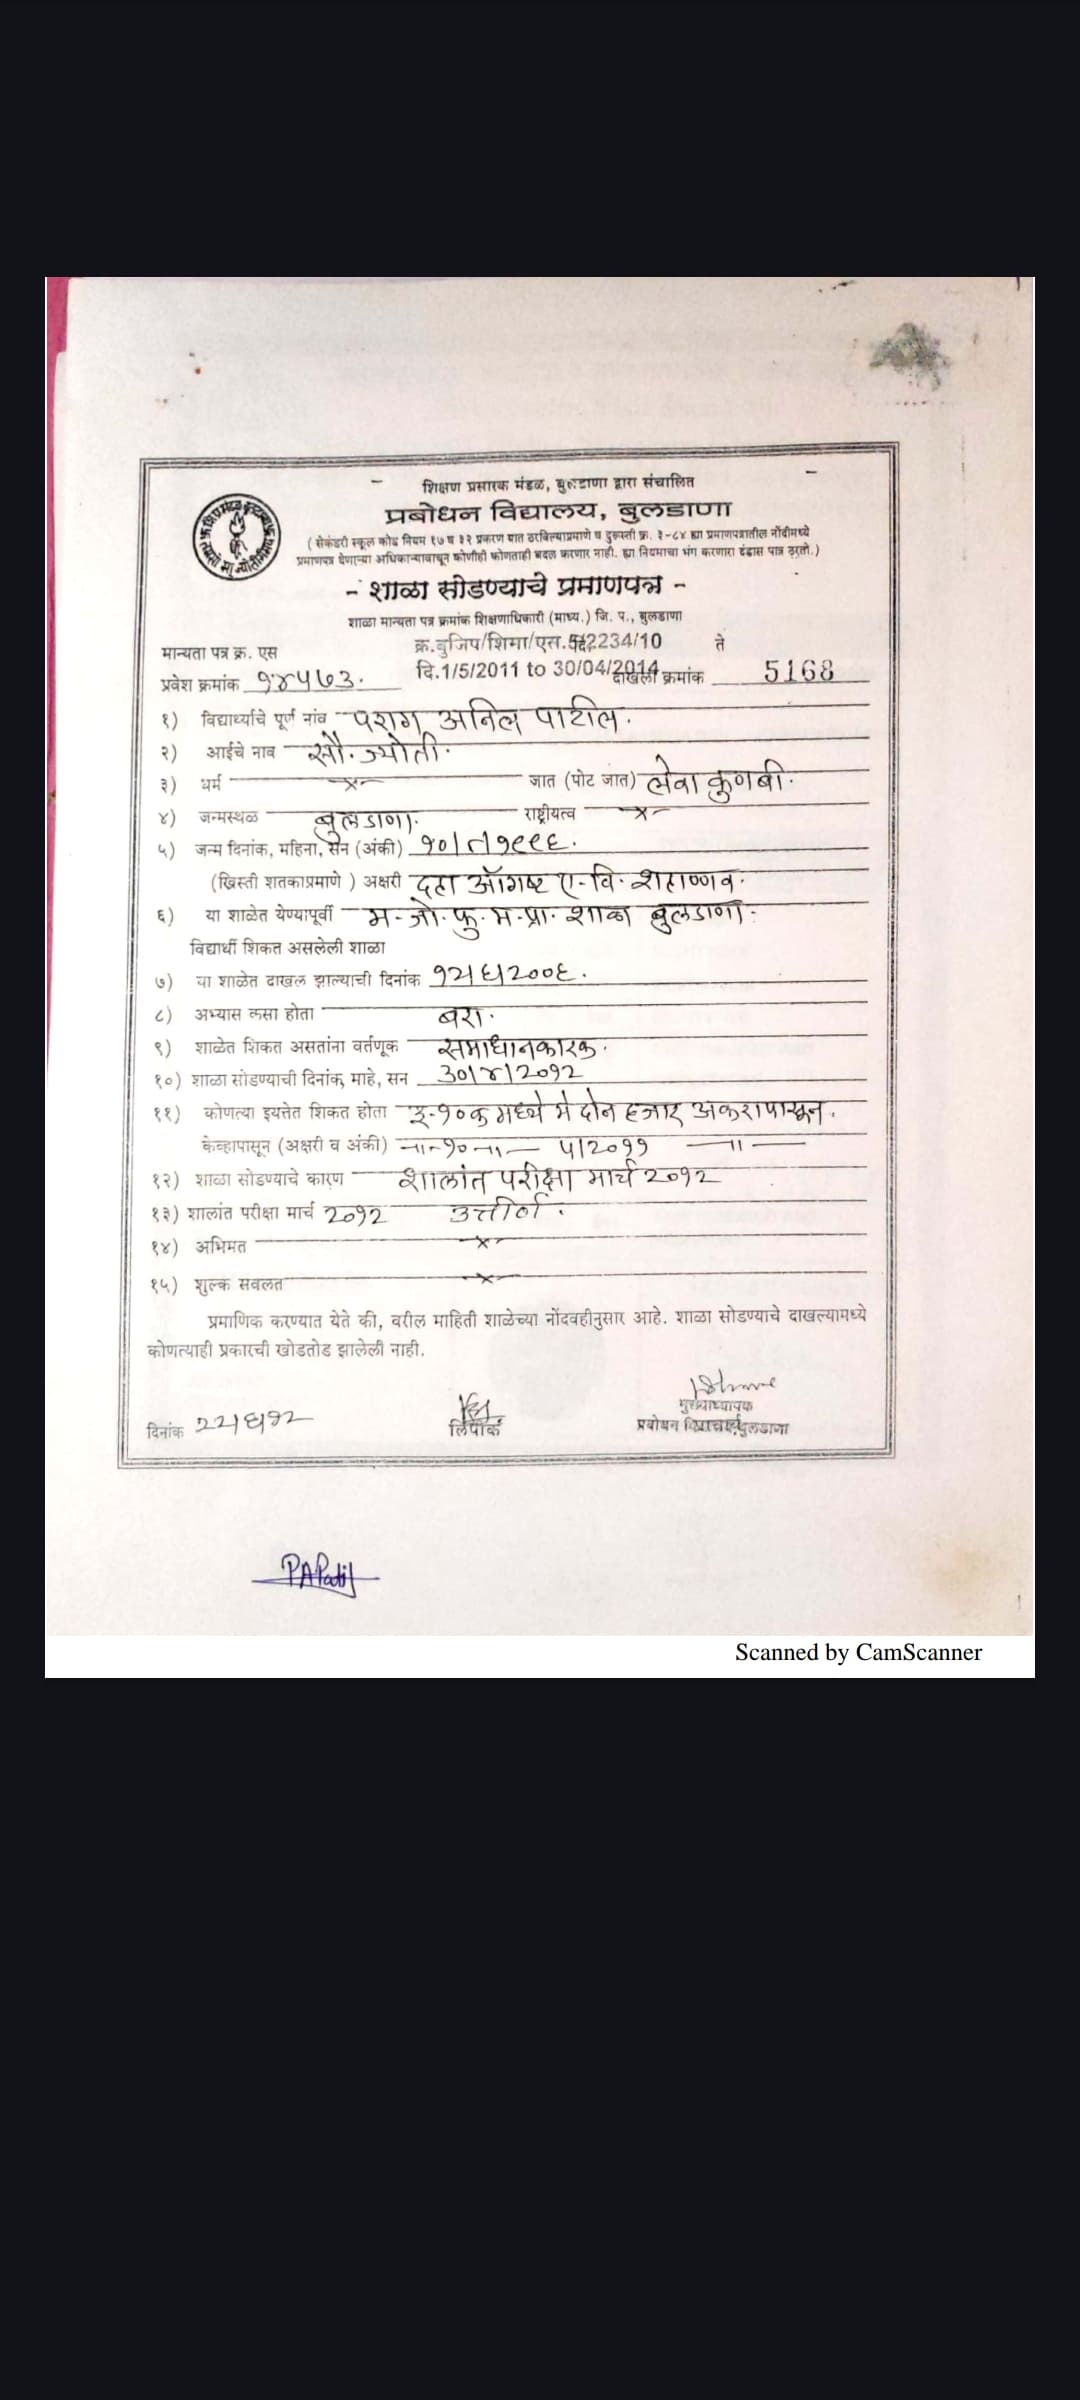 शिक्षण प्रसारक मंडळ, बुलडाणा द्वारा संचालित
प्रबोधन विद्यालय, बुलडाणा
( सेकंडरी स्कूल कोड नियम १७ व ३२ प्रकरण यात ठरविल्याप्रमाणे व दुरुस्ती क्र. ३-८४ ह्या प्रमाणपत्रातील नोंदीमध्ये
प्रमाणपत्र देणाऱ्या अधिकाऱ्यावाचून कोणीही कोणताही बदल करणार नाही. ह्या नियमाचा भंग करणारा दंडास पात्र ठरतो.)
- शाळा सोडण्याचे प्रमाणपत्र -
शाळा मान्यता पत्र क्रमांक शिक्षणाधिकारी (माध्य.) जि. प., बुलडाणा
मान्यता पत्र क्र. एस क्र.बुजिप/शिमा/एस. 2234/10 ते
दि.1/5/2011 to 30/04/2014
प्रवेश क्रमांक १४५७३. दाखला क्रमांक 5168
१) विद्यार्थ्याचे पूर्ण नांव पराग अनिल पाटील.
२) आईचे नाव सौ. ज्योती.
३) धर्म —x— जात (पोट जात) लेवा कुणबी.
४) जन्मस्थळ बुलडाणा. राष्ट्रीयत्व —x—
५) जन्म दिनांक, महिना, सन (अंकी) १०/८/१९९६.
(ख्रिस्ती शतकाप्रमाणे ) अक्षरी दहा ऑगष्ट ए-वि. शहाण्णव.
६) या शाळेत येण्यापूर्वी म-जो-फु-म-प्रा. शाळा बुलडाणा.
विद्यार्थी शिकत असलेली शाळा
७) या शाळेत दाखल झाल्याची दिनांक १२/६/२००६.
८) अभ्यास कसा होता बरा.
९) शाळेत शिकत असतांना वर्तणूक समाधानकारक.
१०) शाळा सोडण्याची दिनांक, माहे, सन ३०/४/२०१२
११) कोणत्या इयत्तेत शिकत होता इ-१० क मध्ये मे दोन हजार अकरापासून.
केव्हापासून (अक्षरी व अंकी) —॥— १० —॥— ५/२०११ —॥—
१२) शाळा सोडण्याचे कारण शालांत परीक्षा मार्च २०१२
१३) शालांत परीक्षा मार्च २०१२ उत्तीर्ण.
१४) अभिमत —x—
१५) शुल्क सवलत —x—
प्रमाणिक करण्यात येते की, वरील माहिती शाळेच्या नोंदवहीनुसार आहे. शाळा सोडण्याचे दाखल्यामध्ये
कोणत्याही प्रकारची खोडतोड झालेली नाही.
दिनांक २२/६/१२ लिपीक मुख्याध्यापक
प्रबोधन विद्यालय, बुलडाणा
PAPatil
Scanned by CamScanner